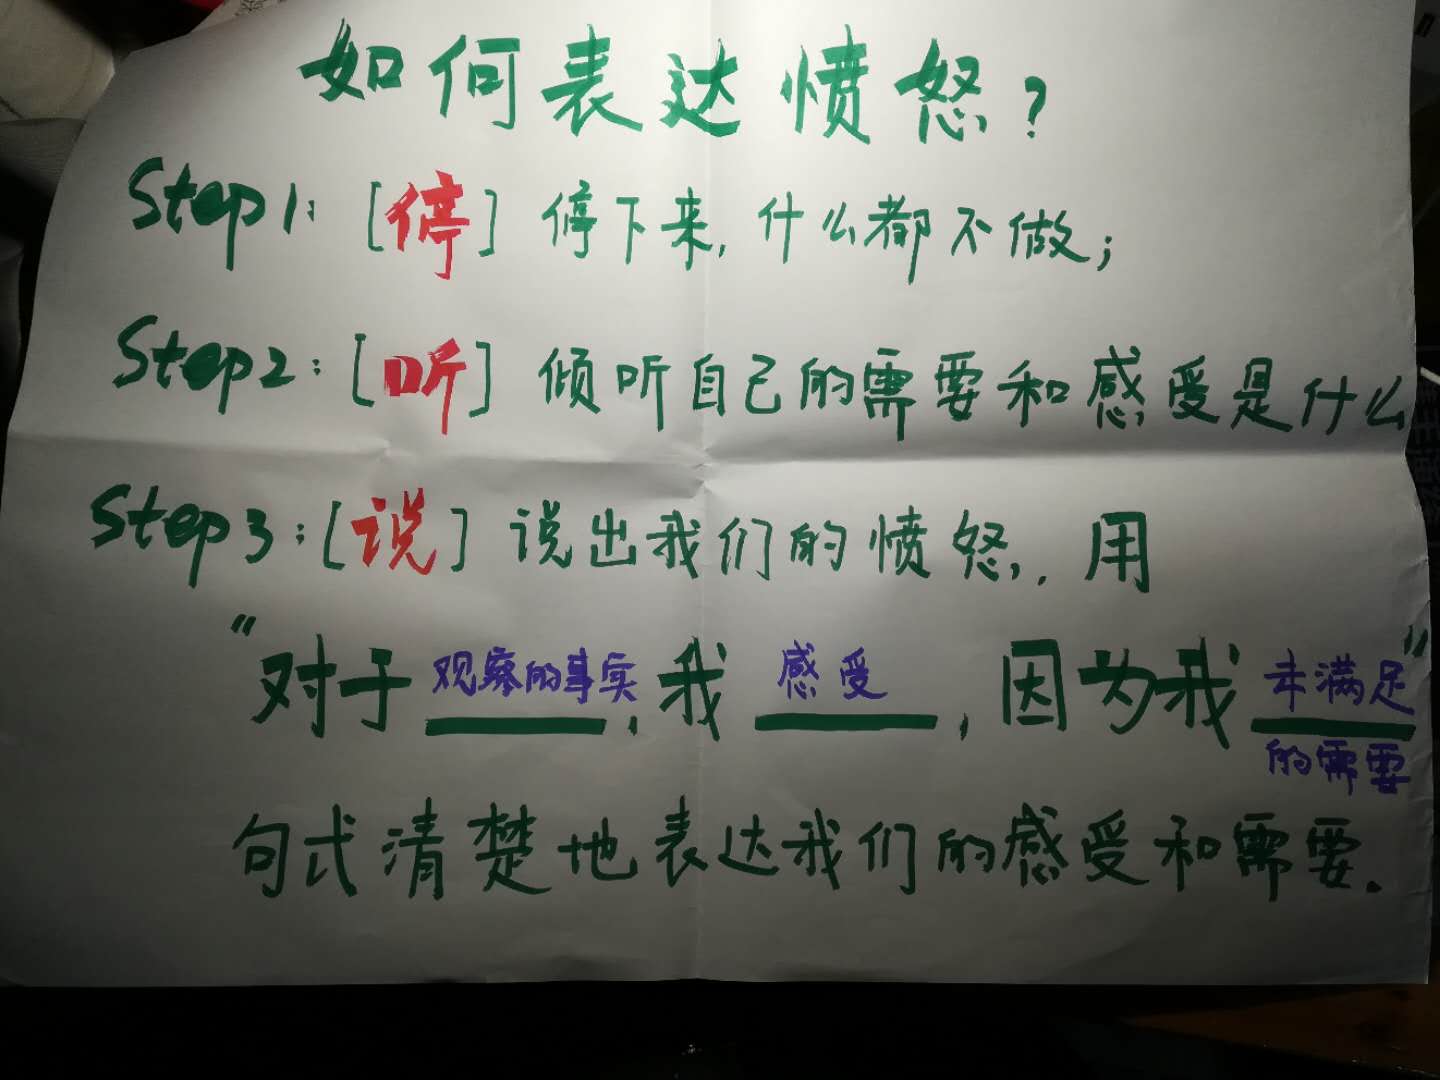 如何表达愤怒?
Step1: [停] 停下来,什么都不做;
Step2: [听] 倾听自己的需要和感受是什么
Step3: [说] 说出我们的愤怒,用
“对于观察的事实,我感受,因为我未满足的需要”
句式清楚地表达我们的感受和需要.